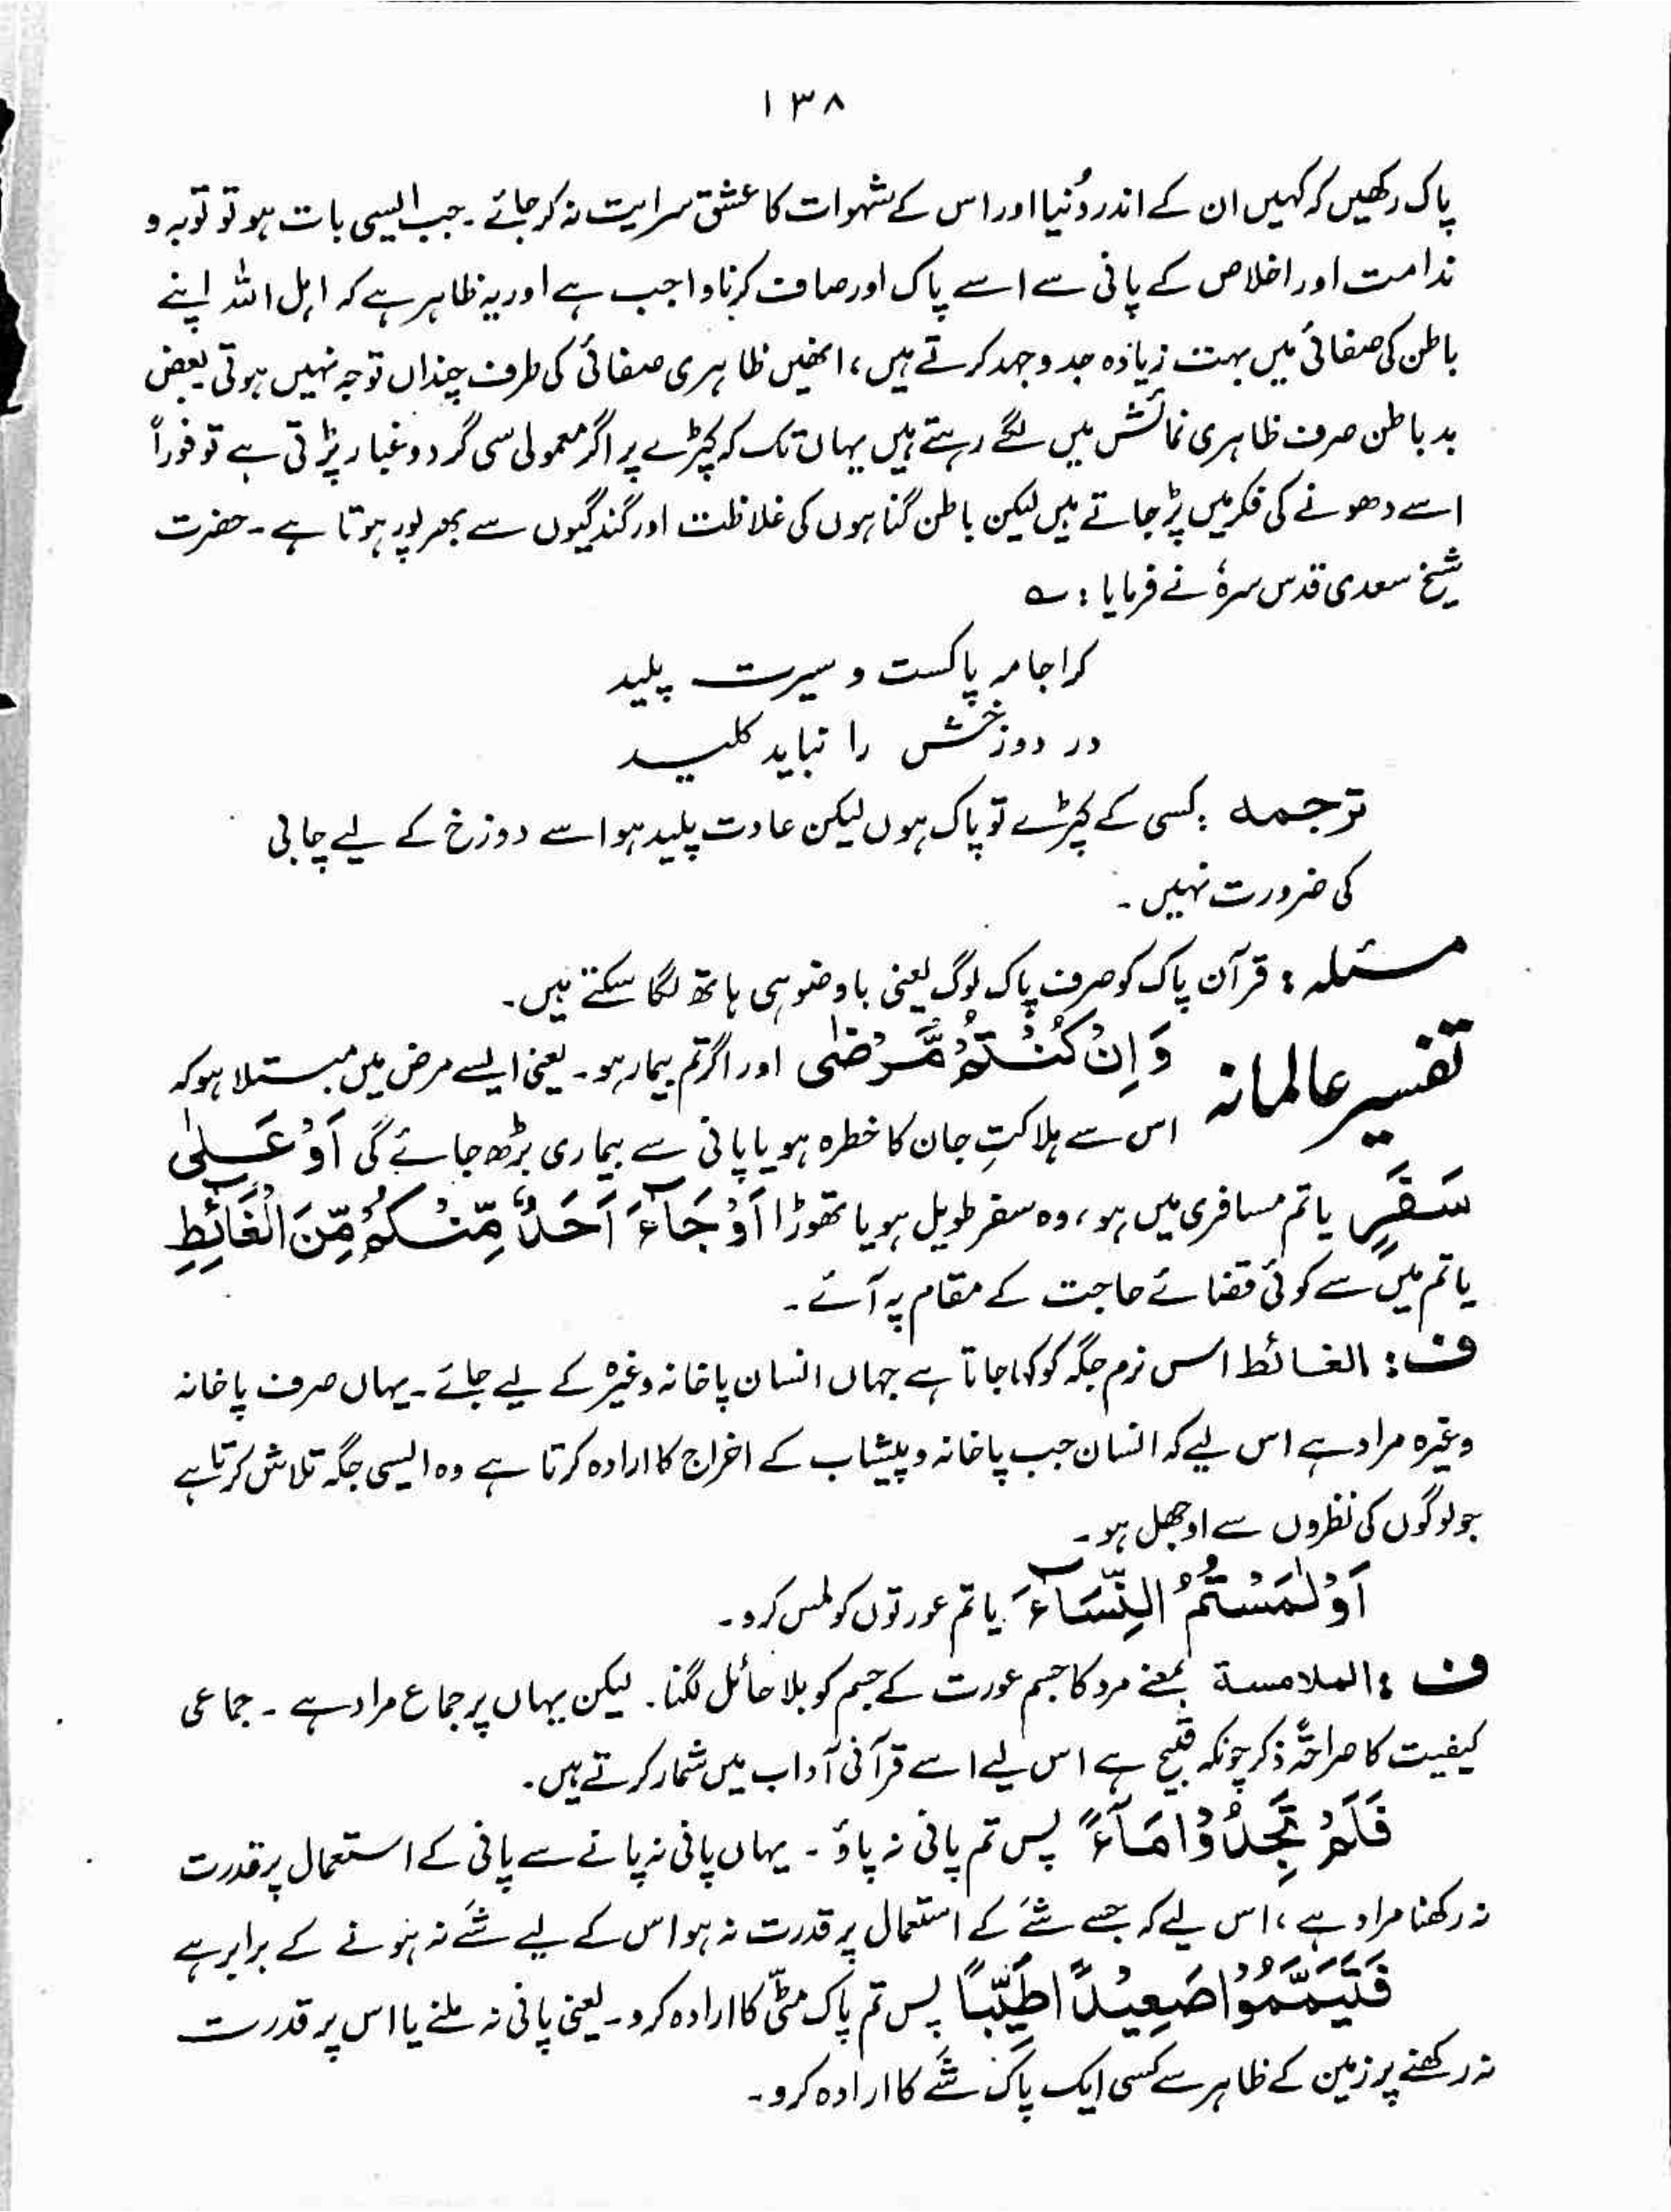 ۱۳۸
پاک رکھیں کہ کہیں ان کے اندر دُنیا اور اس کے شہوات کا عشق سرایت نہ کر جائے۔ جب ایسی بات ہو تو توبہ و
ندامت اور اخلاص کے پانی سے اسے پاک اور صاف کرنا واجب ہے اور یہ ظاہر ہے کہ اہل اللہ اپنے
باطن کی صفائی میں بہت زیادہ جدوجہد کرتے ہیں، انھیں ظاہری صفائی کی طرف چنداں توجہ نہیں ہوتی بعض
بد باطن صرف ظاہری نمائش میں لگے رہتے ہیں یہاں تک کہ کپڑے پر اگر معمولی سی گرد و غبار پڑتی ہے تو فوراً
اسے دھونے کی فکر میں پڑ جاتے ہیں لیکن باطن گناہوں کی غلاظت اور گندگیوں سے بھرپور ہوتا ہے۔ حضرت
شیخ سعدی قدس سرہٗ نے فرمایا : ؎
کرا جامہ پاکست و سیرت پلید
در دوزخش را نباید کلید
ترجمہ : کسی کے کپڑے تو پاک ہوں لیکن عادت پلید ہو اسے دوزخ کے لیے چابی
کی ضرورت نہیں۔
مسئلہ : قرآن پاک کو صرف پاک لوگ یعنی باوضو ہی ہاتھ لگا سکتے ہیں۔
تفسیر عالمانہ وَاِنْ كُنْتُمْ مَّرْضٰى اور اگر تم بیمار ہو۔ یعنی ایسے مرض میں مبتلا ہو کہ
اس سے ہلاکتِ جان کا خطرہ ہو یا پانی سے بیماری بڑھ جائے گی اَوْ عَلٰى
سَفَرٍ یا تم مسافری میں ہو، وہ سفر طویل ہو یا تھوڑا اَوْ جَآءَ اَحَدٌ مِّنْكُمْ مِّنَ الْغَائِطِ
یا تم میں سے کوئی قضائے حاجت کے مقام پہ آئے۔
ف : الغائط اس نرم جگہ کو کہا جاتا ہے جہاں انسان پاخانہ وغیرہ کے لیے جائے۔ یہاں صرف پاخانہ
وغیرہ مراد ہے اس لیے کہ انسان جب پاخانہ و پیشاب کے اخراج کا ارادہ کرتا ہے وہ ایسی جگہ تلاش کرتا ہے
جو لوگوں کی نظروں سے اوجھل ہو۔
اَوْ لٰمَسْتُمُ النِّسَآءَ یا تم عورتوں کو لمس کرو۔
ف : الملامسة بمعنے مرد کا جسم عورت کے جسم کو بلا حائل لگنا۔ لیکن یہاں پر جماع مراد ہے۔ جماعی
کیفیت کا صراحتًہ ذکر چونکہ قبیح ہے اس لیے اسے قرآنی آداب میں شمار کرتے ہیں۔
فَلَمْ تَجِدُوْا مَآءً پس تم پانی نہ پاؤ۔ یہاں پانی نہ پانے سے پانی کے استعمال پر قدرت
نہ رکھنا مراد ہے، اس لیے کہ جسے شَے کے استعمال پر قدرت نہ ہو اس کے لیے شَے نہ ہونے کے برابر ہے
فَتَيَمَّمُوْا صَعِيْدًا طَيِّبًا پس تم پاک مٹی کا ارادہ کرو۔ یعنی پانی نہ ملنے یا اس پر قدرت
نہ رکھنے پر زمین کے ظاہر سے کسی ایک پاک شَے کا ارادہ کرو۔